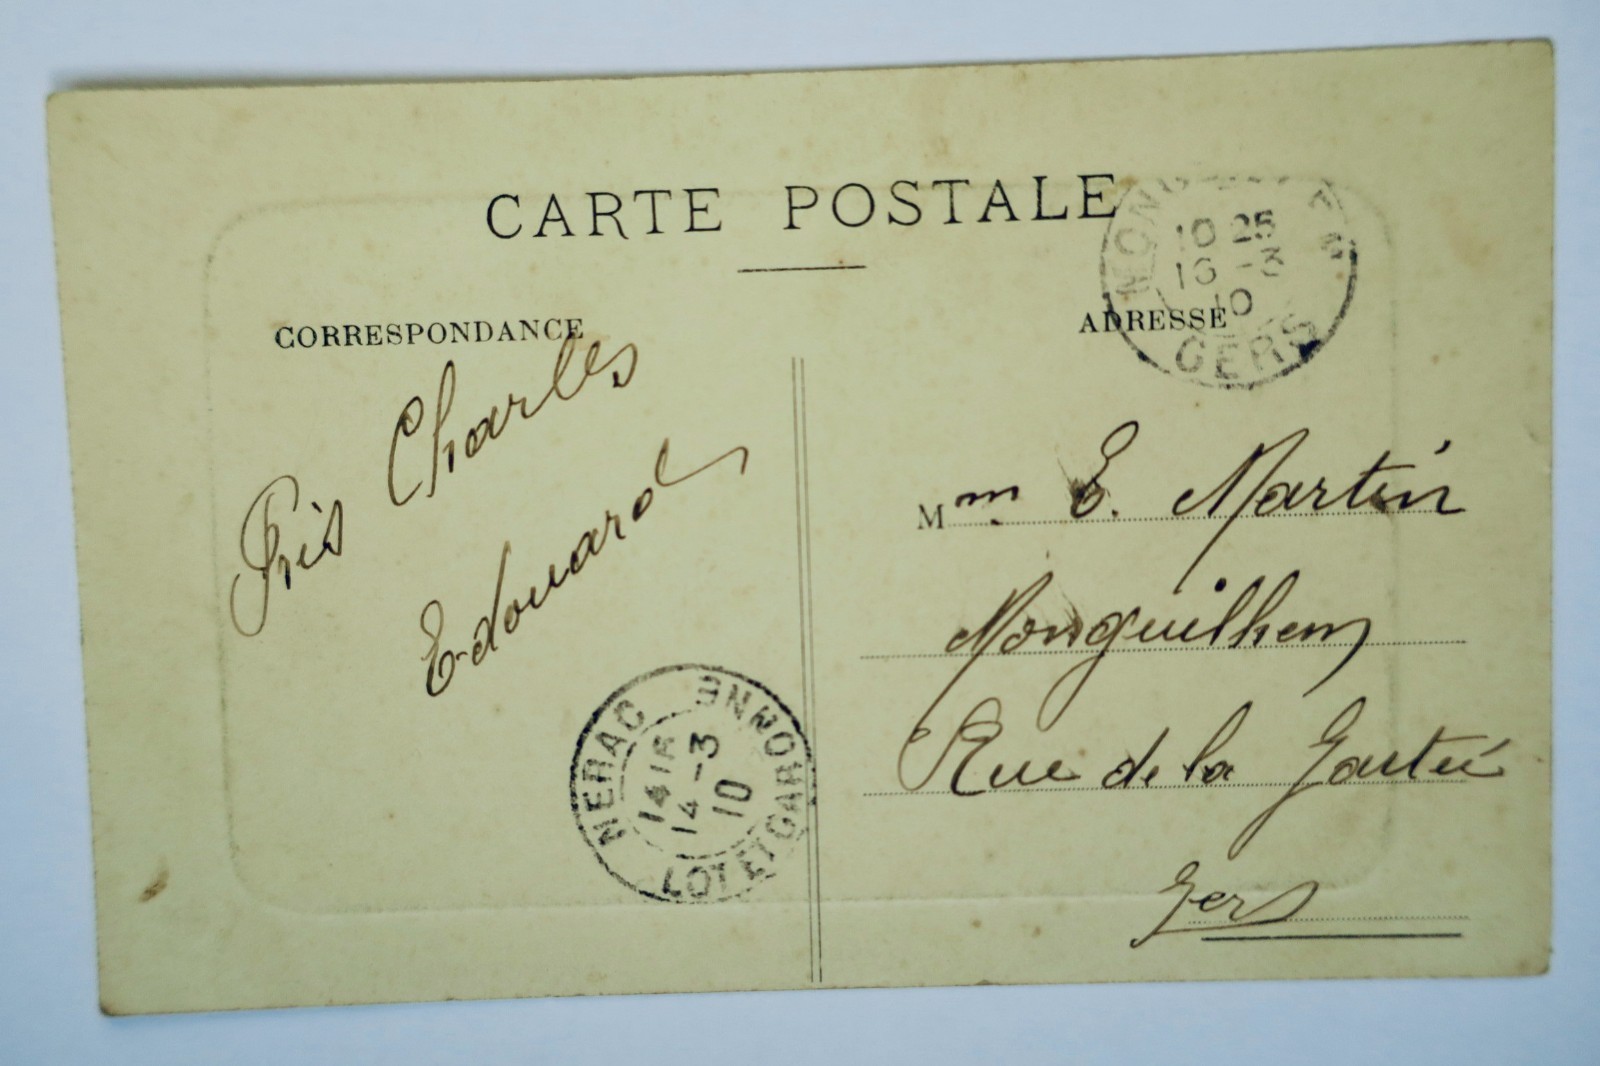 CARTE POSTALE
CORRESPONDANCE
Charles
Edouard
NERAC
14 15
14 -3
10
LOT ET GARONNE
10 25
16 -3
10
GERS
ADRESSE
Mme E. Martin
Monguilhem
Rue de la
Gers